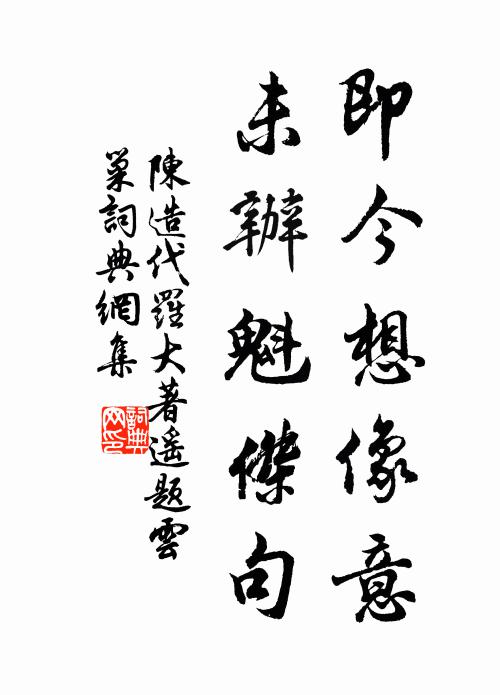 即今想像意
未辦魁傑句
陳造代羅大著遥題雲
巢詞典網集
詞典网印